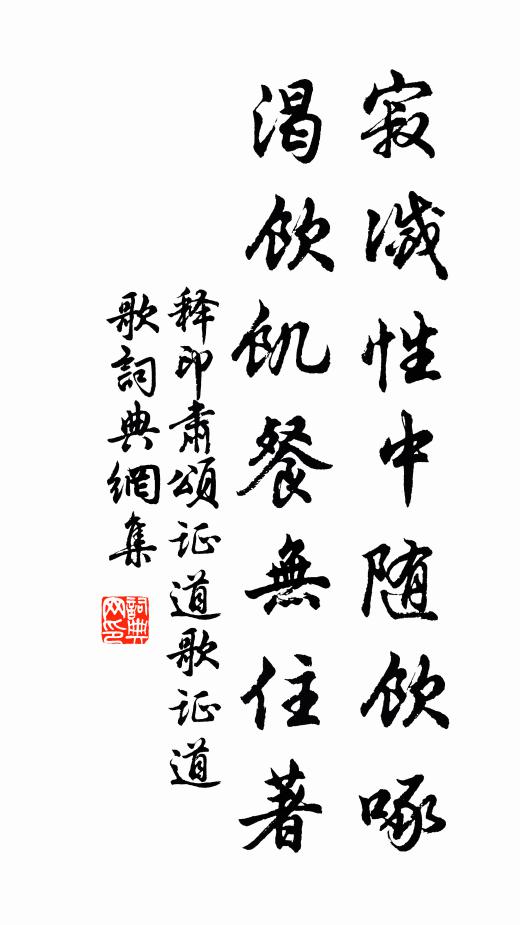 寂滅性中随飲啄
渴飲飢餐無住著
释印肃頌证道歌证道
歌詞典網集
詞典
网印